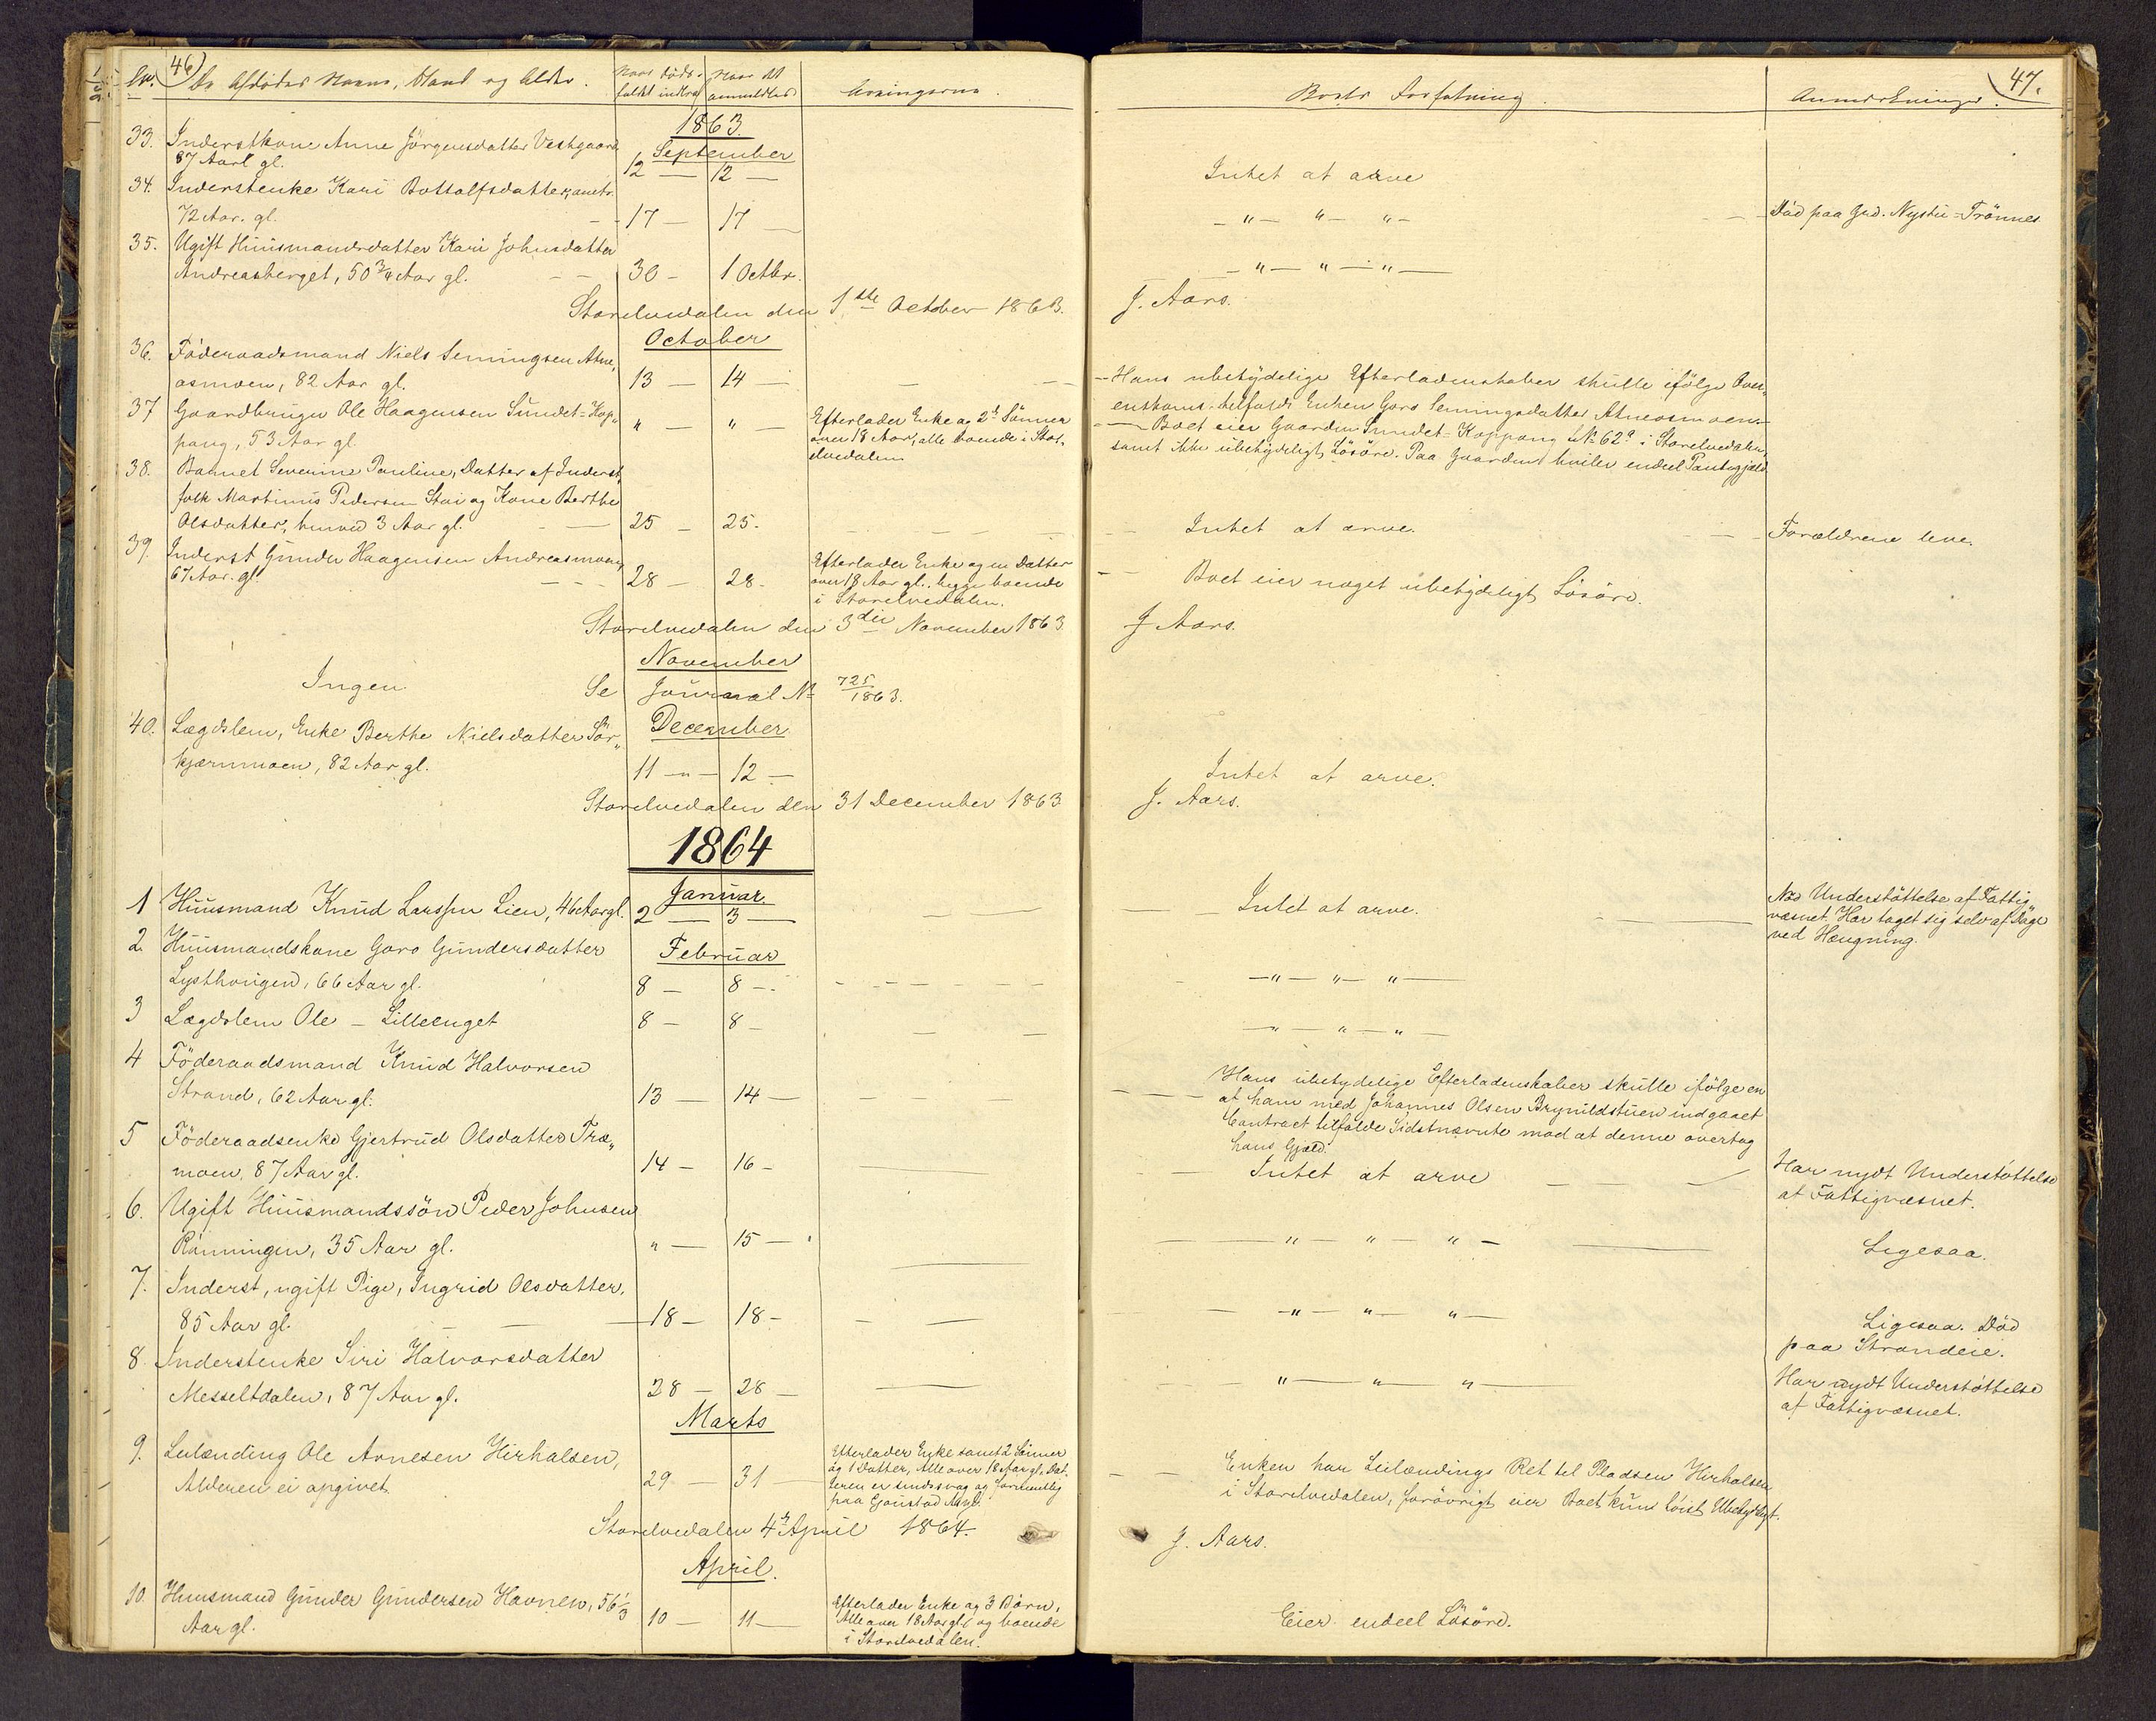 46)
No. De Afdødes Navne, Stand og Alder. Naar Døds- Naar det Arvingerne.
faldet indtraf anmeldtes
1863.
33. Inderstkone Anne Jörgensdatter Vestgaard
September
87 Aarl gl. 12 — 12 —
34. Inderstenke Kari Bottolfsdatter,
72 Aar. gl. 17 — 17 —
35. Ugift Huusmandsdatter Kari Johnsdatter
Andreasberget, 50 3/4 Aar gl. 30 — 1 Octbr.
Storelvedalen den 1ste October 1863.
October
36. Föderaadsmand Niels Semingsen Atne„
osmoen, 82 Aar gl. 13 — 14 —
37 Gaardbruger Ole Haagensen Sundet=Kop„
pang, 53 Aar gl. " — " —
Efterlader Enke og 2de Sönner
over 18 Aar, alle boende i Stor-
elvedalen
38. Barnet Severine Pauline, Datter af Inderst„
folk Martinus Pedersen Stai og Kone Berthe
Olsdatter, henved 3 Aar gl. — 25 — 25.
39. Inderst Gunder Haagensen Andreasmoen,
67 Aar. gl. 28 — 28.
Efterlader Enke og en Datter
over 18 Aar gl., begge boende
i Storelvedalen.
Storelvedalen den 3die November 1863
November
Ingen Se Journal No 725/1863.
December
40. Lægdslem, Enke Berthe Nielsdatter Sör„
kjærnmoen, 82 Aar gl. 11 — " — 12 —
Storelvedalen den 31 December 1863
1864
Januar.
1 Huusmand Knud Larssen Lien, 46 Aar gl. 2 — 3 —
Februar
2. Huusmandskone Goro Gundersdatter
Lysthougen, 66 Aar gl. 8 — 8 —
3 Lægdslem Ole — Lilleenget 8 — 8 —
4 Föderaadsmand Knud Halvorsen
Strand, 62 Aar gl. 13 — 14 —
5 Föderaadsenke Gjertrud Olsdatter Træ„
moen, 87 Aar gl. 14 — 16 —
6. Ugift Huusmandssön Peder Johnsen
Rönningen, 35 Aar gl. " — 15 — "
7. Inderst, ugift Pige, Ingrid Olsdatter,
85 Aar gl. 18 — 18 —
8. Inderstenke Siri Halvorsdatter
Messeltdalen, 87 Aar gl. 28 — 28 —
Marts
9. Leilending Ole Arnesen Hirhalsen,
Alderen ei opgivet. 29 — 31 —
Efterlader Enke samt 2 Sönner
og 1 Datter, Alle over 18 Aar gl. Dat-
teren er sindssvag og forment­lig
paa Gaustad Asyl.
Storelvedalen 4de April 1864.
April.
10. Huusmand Gunder Gundersen Havnen, 56 1/3
Aar gl. 10 — 11 —
Efterlader Enke og 3 Börn,
Alle over 18 Aar gl., og boende
i Storelvedalen.
47.
Boets Forfatning. Anmærkninger.
Intet at arve
— " — " — " — Död paa Grd. Nystu=Trönnes
— " — " — " —
J. Aars.
— Hans ubetydelige Efterladenskaber skulle ifölge Over„
enskomst tilfalde Enken Goro Semingsdatter Atneosmoen.
— Boet eier Gaarden Sundet=Koppang L.No 62a i Storelvedalen,
samt ikke ubetydeligt Lösöre. Paa Gaarden hviler endeel Pantegjæld
Intet at arve. Forældrene leve.
Boet eier noget ubetydeligt Lösöre.
J Aars.
Intet at arve.
J. Aars.
Intet at arve.
Nöd Understöttelse af Fattig
væsnet. Har taget sig selv af Dage
ved Hængning.
— " — " — " —
— " — " — " —
Hans ubetydelige Efterladenskaber skulle ifölge en
af ham med Johannes Olsen Brynildstuen indgaaet
Contract tilfalde Sidstnævnte mod at denne overtog
hans Gjæld.
Intet at arve
Har nydt Understöttelse
af Fattigvæsnet.
— " — " — " — Ligesaa.
— " — " — " — Ligesaa. Död
paa Strandeie.
— " — " — " — Har nydt Understöttelse
af Fattigvæsnet.
Enken har Leilændings Ret til Pladsen Hirhalsen
i Storelvedalen, forövrigt eier Boet kun höist Ubetydeligt.
J. Aars.
Eier endeel Lösöre.